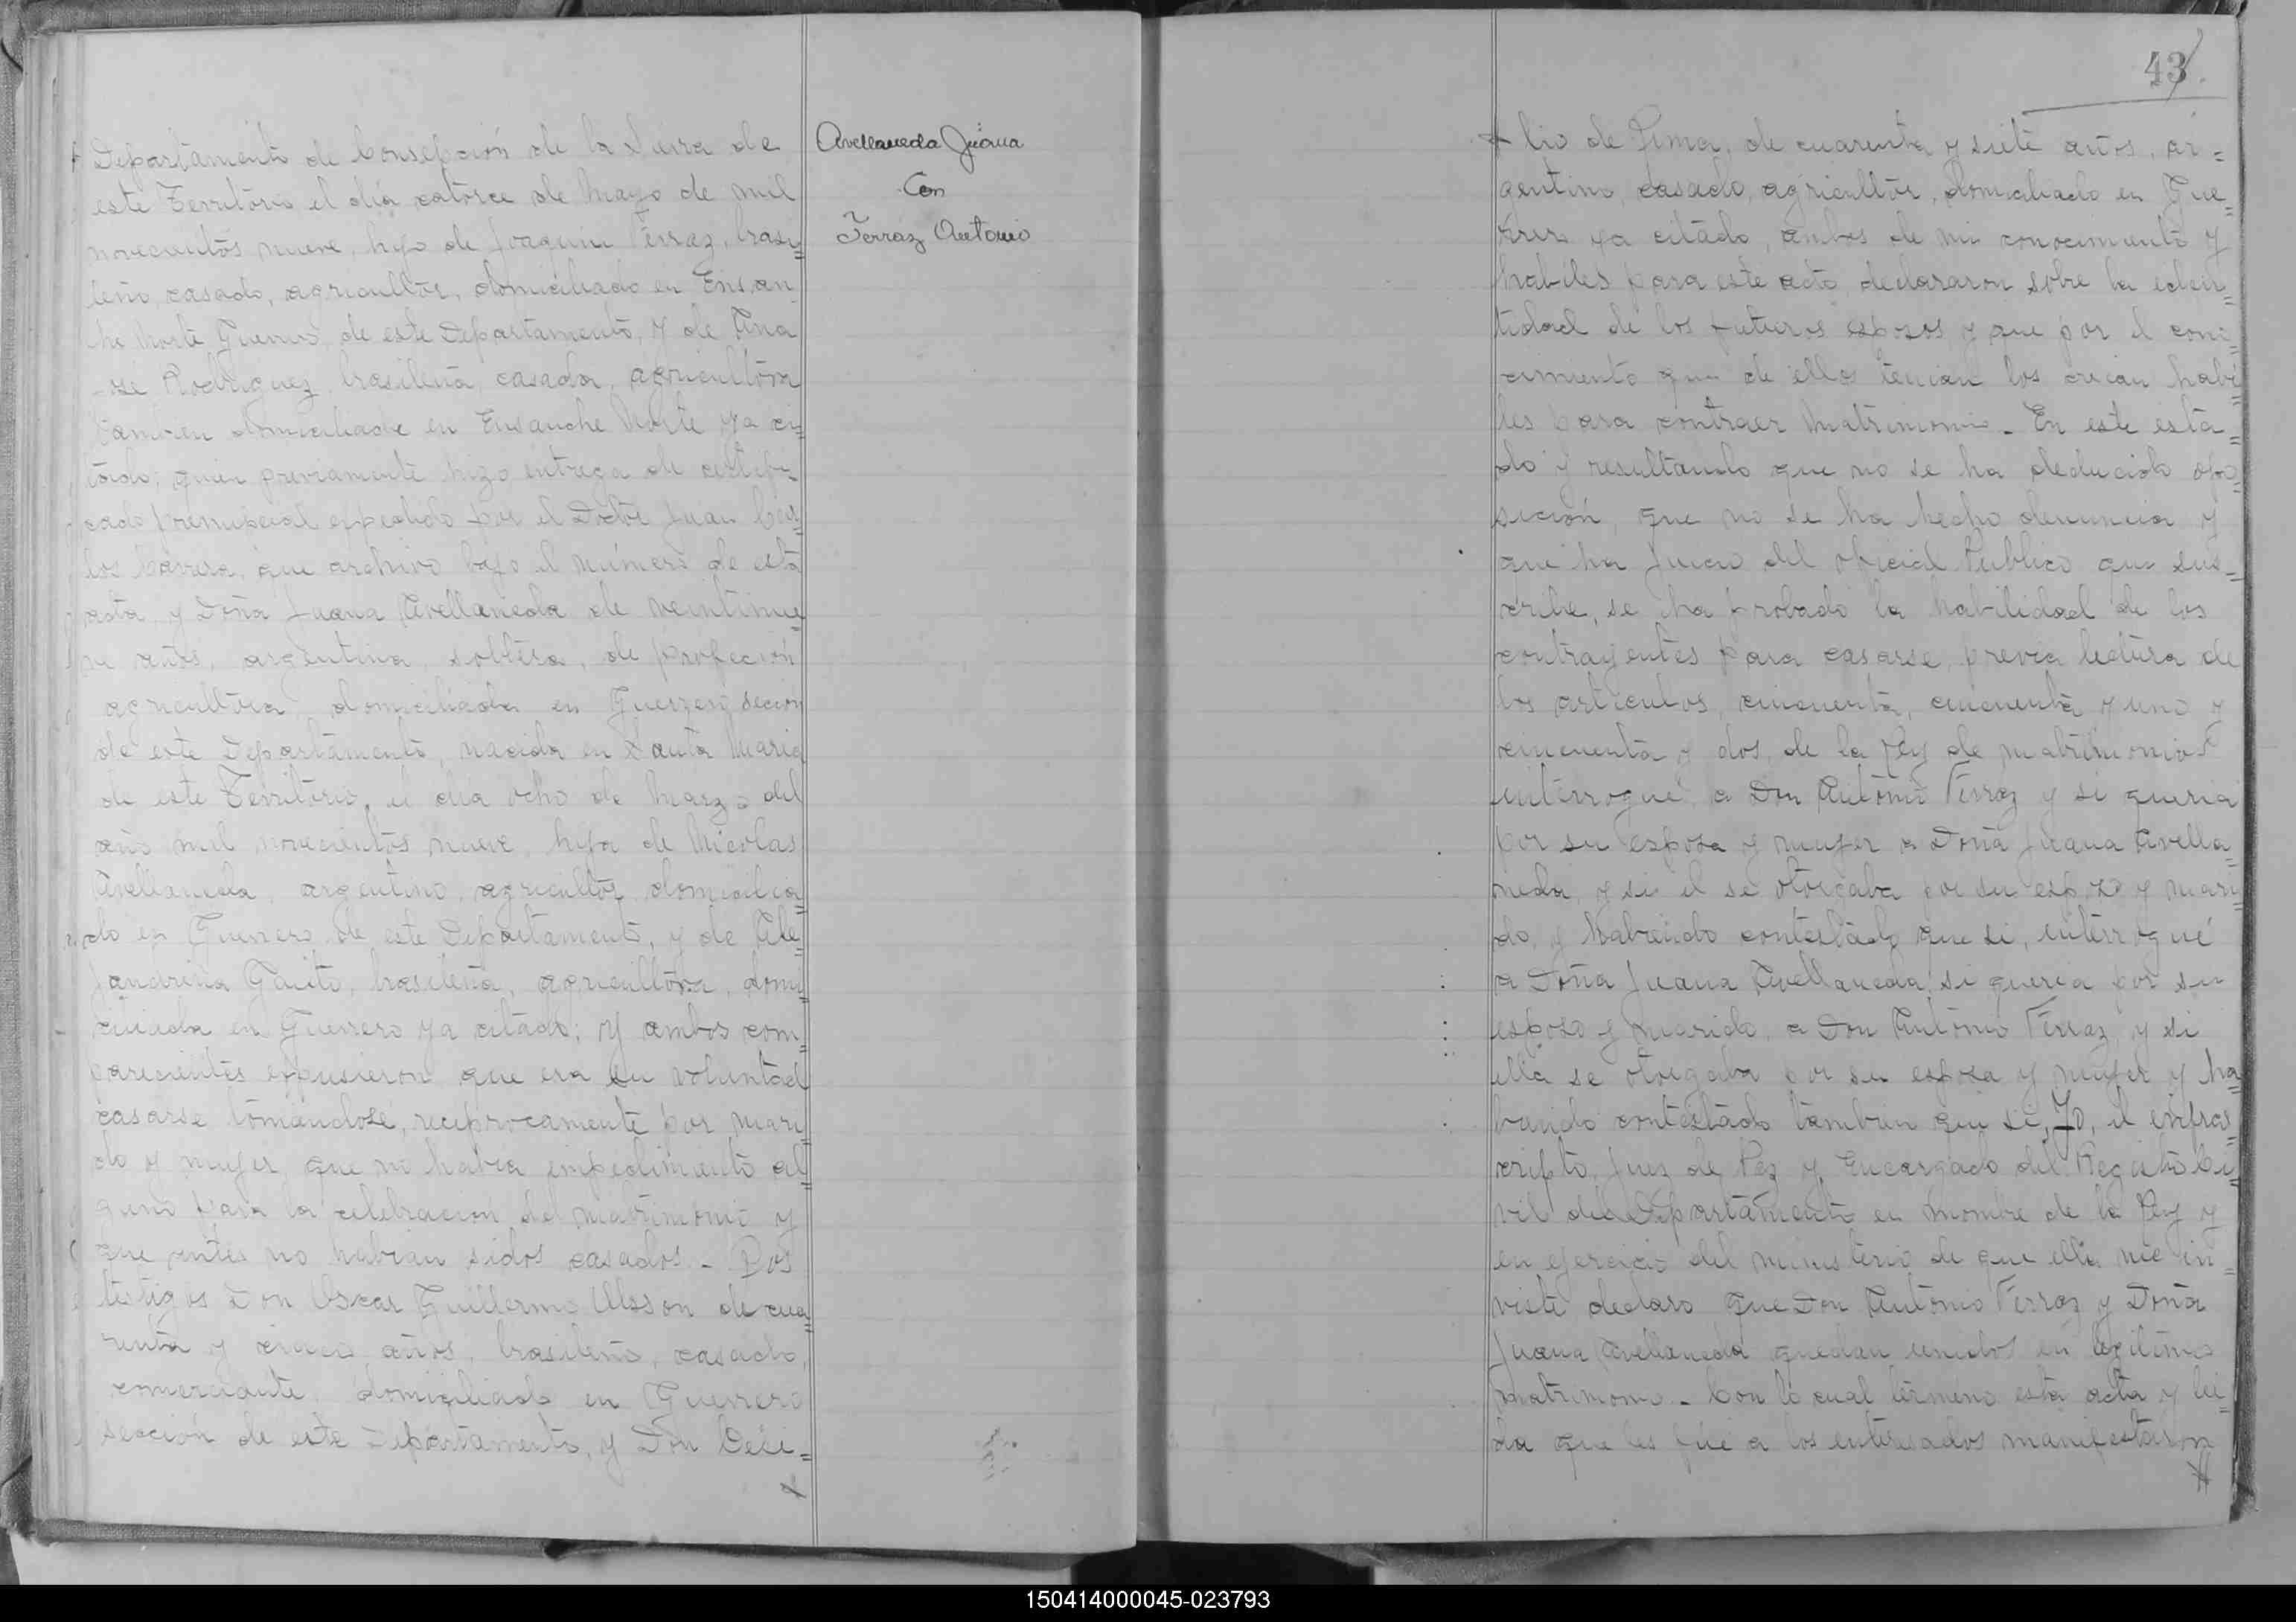 Departamento de Consepción de la Sierra de
este Territorio el día catorce de Mayo de mil
novecientos nueve, hijo de Joaquin Ferraz, brasi=
leño, casado, agricultor, domiciliado en Ensan
che Norte Guerrero, de este Departamento, y de
Rodriguez, brasileña, casada, agricultora
tambien domiciliada en Ensanche Norte ya ci=
tado; quien previamente hizo entrega de certifi-
cado prenupcial expedido por el Doctor Juan Car=
los que archivo bajo el número de esta
acta, y Doña Juana Avellaneda de veintinue=
ve años, argentina, soltera, de profeción
agricultora domiciliada en sección
de este Departamento, nacida en Santa Maria
de este Territorio, el dia ocho de Marzo del
año mil novecientos nueve, hija de Nicolas
Avellaneda, argentino, agricultor, domicilia=
do en Guerrero de este Departamento, y de Ale=
jandrina brasileña, agricultora, domi=
ciliada en Guerrero ya citado; y ambos com=
parecientes expusieron que era su voluntad
casarse tomandose, reciprocamente por mari=
do y mujer, que no habia impedimento al=
guno para la celebracion del matrimonio y
que antes no habian sidos casados - Dos
testigos Don Oscar Guillermo Olsson de cua=
renta y cinco años, brasileño, casado,
comerciante, domiciliado en Guerrero
sección de este Departamento, y Don Oeli=
Avellaneda Juana
Con
Ferraz Antonio
43
lio de Lima, de cuarenta y siete años, ar=
gentino, casado, agricultor, domiciliado en Gue=
rrero ya citado, ambos de mi conocimiento y
habiles para este acto declararon sobre la eden=
tidad de los futuros esposos y que por el cono=
cimiento que de ellos tenian los creian habi=
les para contraer Matrimonio - En este esta=
do y resultando que no se ha deducido opo=
sición, que no se ha hecho denuncia y
que ha juicio del oficial Publico que sus=
cribe, se ha probado la habilidad de los
contrayentes para casarse, previa lectura de
los articulos, cincuenta, cincuenta y uno y
cincuenta y dos, de la Ley de matrimonios
interrogué, a Don Antonio Ferraz y si queria
por su esposa y mujer a Doña Juana Avella=
neda, y si el se otorgaba por su esposo y mari=
do, y habiendo contestado que si, interrogué
a Doña Juana Avellaneda, si queria por su
esposo y marido, a Don Antonio Ferraz, y si
ella se otorgaba por su esposa y mujer y ha=
biendo contestado tambien que si, Yo, el enfras=
cripto, Juez de Paz y Encargado del Registro Ci=
vil del Departamento en nombre de la Ley y
en ejercicio del ministerio de que ella me in=
viste declaro que Don Antonio Ferraz y Doña
Juana Avellaneda quedan unidos en legitimo
matrimonio - Con lo cual termino esta acta y lei=
da que les fué a los enteresados manifestaron
150414000045-023793